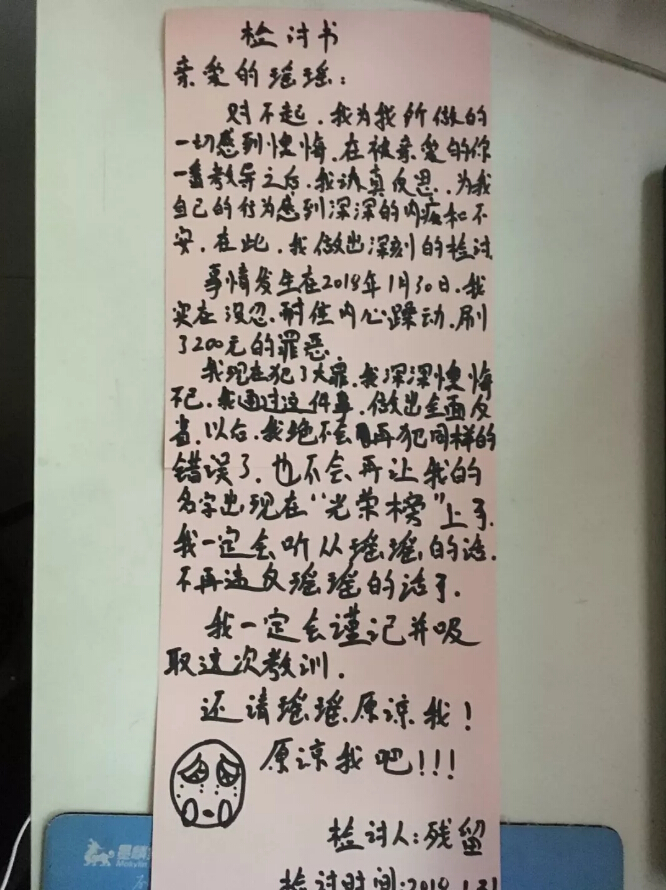 检讨书
亲爱的瑶瑶：
对不起，我为我所做的
一切感到懊悔，在被亲爱的你
一番教导之后，我认真反思，为我
自己的行为感到深深的内疚和不
安，在此，我做出深刻的检讨
事情发生在2018年1月30日，我
实在没忍，耐住内心躁动，刷
了200元的罪恶
我现在犯了大罪，我深深懊悔
不已，我通过这件事，做出全面反
省，以后，我绝不会再犯同样的
错误了，也不会再让我的
名字出现在“光荣榜”上了，
我一定会听从瑶瑶的话，
不再违反瑶瑶的话了.
我一定会谨记并吸
取这次教训.
还请瑶瑶原谅我！
原谅我吧！！！
检讨人：残留
检讨时间：2018.1.31